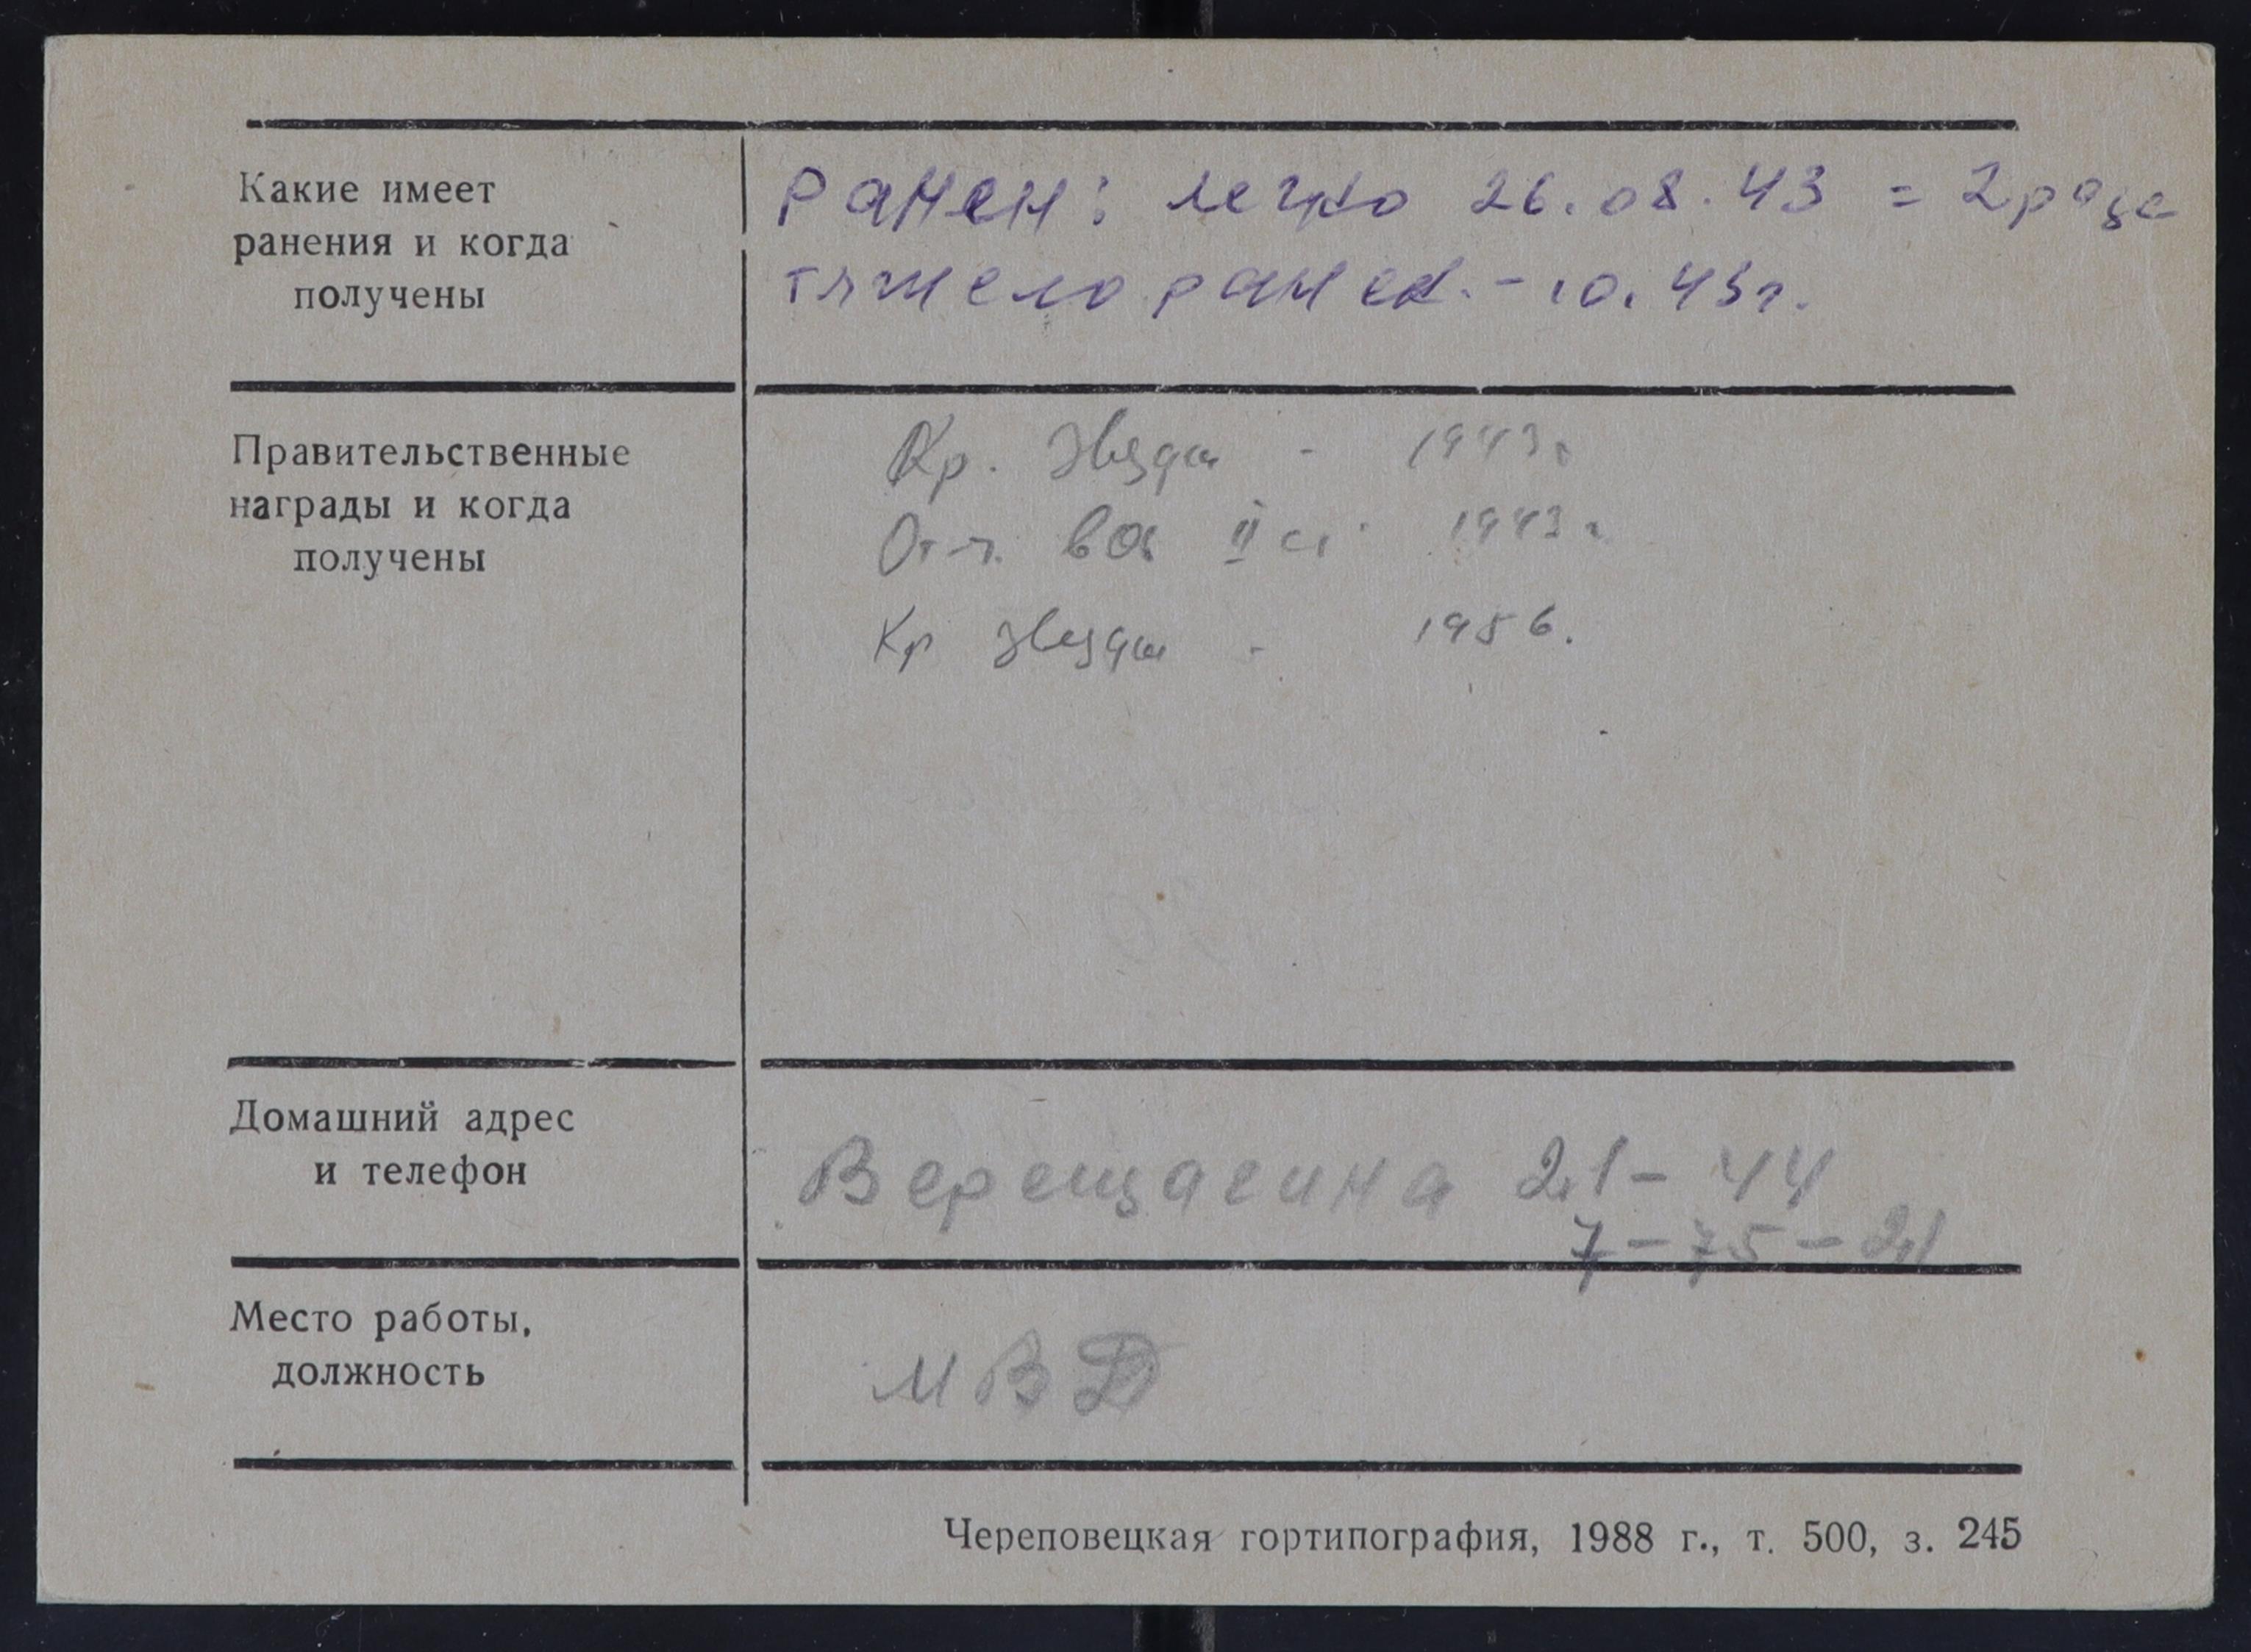 Какие имеет
ранения и когда
получены
Ранен: легко 26.08.43 = 2 раза
тяжело ранен. - 10.43г.
Правительственные
награды и когда
получены
Кр. Звезды - 1943г
От-ч. вой II ст. 1943г.
Кр звезды - 1956.
Домашний адрес
и телефон
Верещагина 21-44
7-75-21
Место работы,
должность
МВД
Череповецкая гортипография, 1988 г., т. 500, з. 245